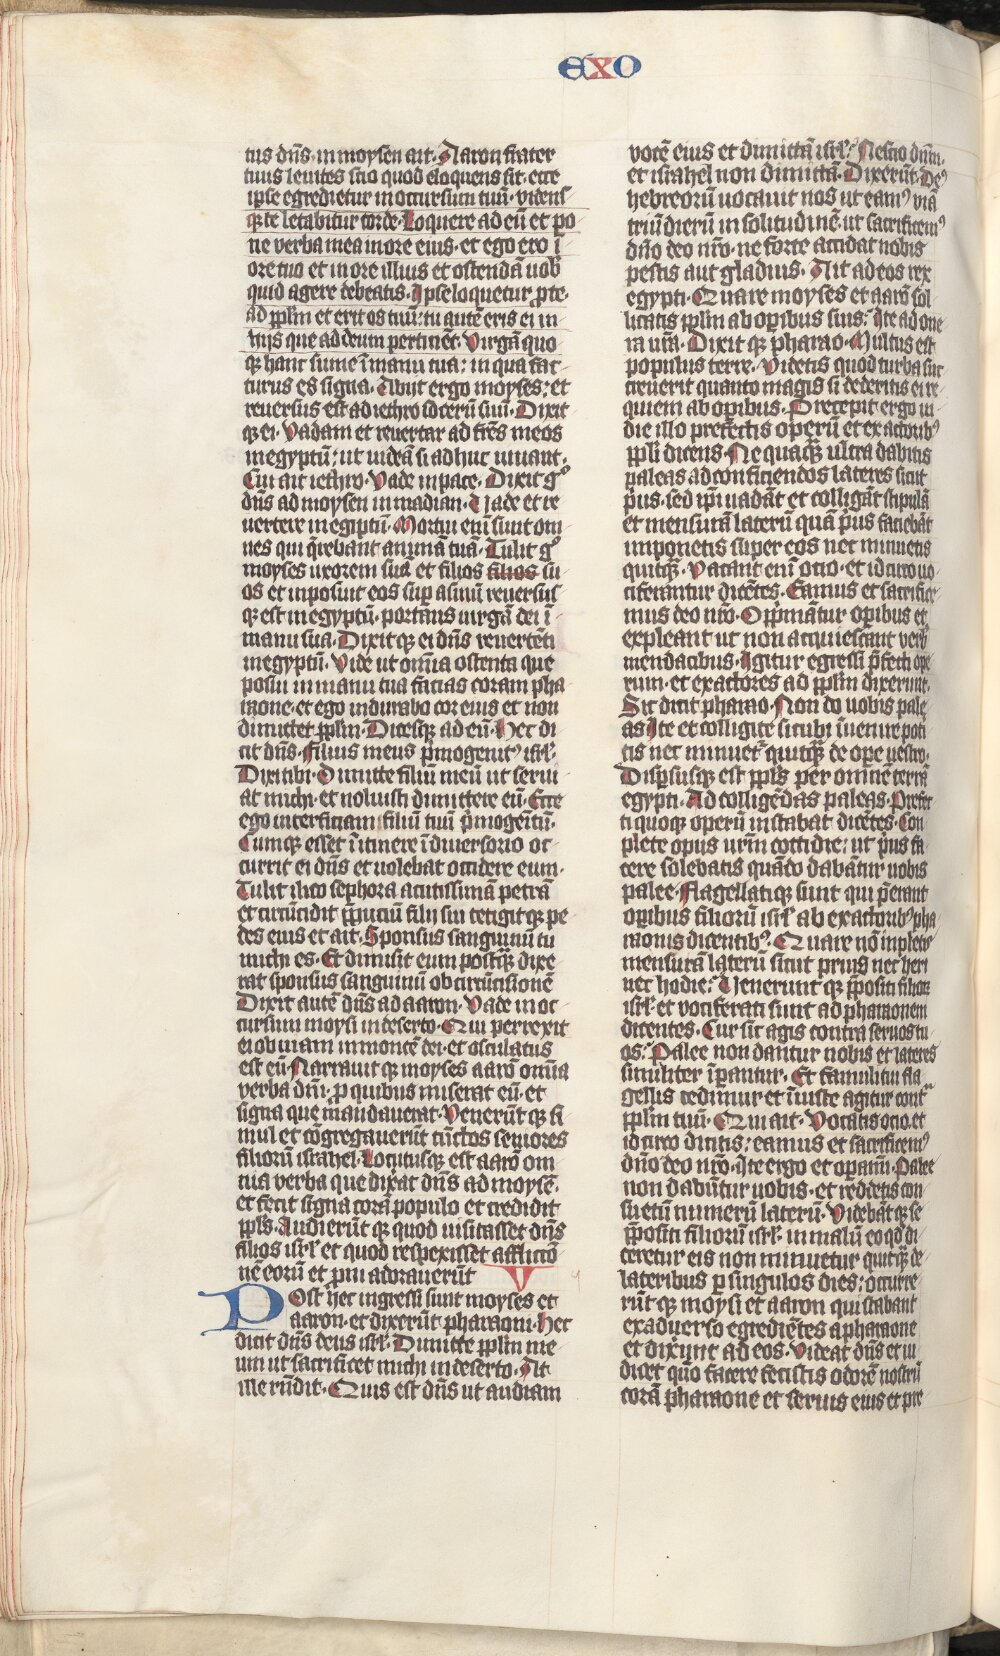 EXO
tus dn̄s. in moysen ait. Aaron frater
tuus leuites scio quod eloquens sit. ecce
ipse egredietur in occursum tuū. vidensꝫ
q; te letabitur corde. Loquere ad eū et po
ne verba mea in ore eius. et ego ero ī
ore tuo et in ore illius et ostendā uob̄
quid agere debeatis. Ipse loquetur p̄ te.
ad pp̄lm et erit os tuū: tu autē eris ei in
hijs que ad deum pertinēt. Virgā quo
q; hanc sume ī manu tua: in qua fac
turus es signa. Abijt ergo moyses: et
reuersus est ad iethro socerū suū. Dixit
q; ei. Vadam et reuertar ad fr̄es meos
in egyptū: ut videā si adhuc uiuant.
Cui ait iethro. Vade in pace. Dixit gͦ
dn̄s ad moysen in madian. Uade et re
uertere in egiptū. Mortui eni̅ sunt om
nes qui q̄rebant animā tuā. Tulit gͦ
moyses uxorem suā et filios filios su
os et inposuit eos sup̱ asinū reuersus
q; est in egyptū. portans uirgā dei ī
manu sua. Dixit q; ei dn̄s reuertēti
in egyptū. Vide ut om̄ia ostenta que
posui in manu tua facias coram pha
raone. et ego indurabo cor eius et non
dimittet pp̄lm. Dicesq; ad eū. Hec di
cit dn̄s. Filius meus p̄mogenitꝰ isr̄l.
Dixi tibi. Dimitte filiū meū ut serui
at michi. et noluisti dimittere eū. Ecce
ego interficiam filiū tuū p̄mogenitū.
Cumq; esset ī itinere ī diuersorio oc
currit ei dn̄s et uolebat occidere eum.
Tulit ilico sephora acutissimā petrā
et circūcidit p̄puciū filij sui tetigit q; pe
des eius et ait. Sponsus sanguinū tu
michi es. Et dimisit eum postq̄; dixe
rat sponsus sanguinū ob circūcisionē
Dixit autē dn̄s ad aaron. Vade in oc
cursum moysi in deserto. Qui perrexit
ei obuiam in montē dei. et osculatus
est eū. Narrauit q; moyses aarō om̄ia
verba dn̄i. p̱ quibus miserat eū. et
signa que mandauerat. Venerūt q; si
mul et cōgregauerūt cūctos seniores
filiorū israhel. Locutusq; est aarō om
nia verba que dixat dn̄s ad moysē.
et fecit signa corā populo et credidit
pp̄ls. Audierūt q; quod uisitasset dn̄s
filios isr̄l et quod respexisset afflictō
nē eorū et p̄ni adorauerūt V
Post hec ingressi sunt moyses et
aaron. et dixerūt pharaoni. Hec
dicit dn̄s deus isr̄l. Dimitte pp̄lm me
um ut sacrificet michi in deserto. At
ille rn̄dit. Quis est dn̄s ut audiam
vocē eius et dimittā isr̄l: Nescio dn̄m.
et israhel non dimittā. Dixerūt. Deꝰ
hebreorū uocauit nos ut eamꝰ viā
triū dierū in solitudinē. ut sacrificemꝰ
dn̄o deo nr̄o. ne forte accidat nobis
pestis aut gladius. Ait ad eos rex
egypti. Quare moyses et aarō sol
licitatis pp̄lm ab op̱ibus suis: Ite ad one
ra ur̄a. Dixit q; pharao. Multus est
populus terre. Videtis quod turba suc
creuerit quanto magis si dederitis ei re
quiem ab op̱ibus. Precepit ergo in
die illo prefectis operū et exactoribꝰ
pp̄li dicens. Ne quaq̄; ultra dabitis
paleas ad conficiendos lateres sicut
p̄us. sed ip̄i uadāt et colligāt stipulā
et mensurā laterū quā p̄us faciebāt
imponetis super eos nec minuetis
quitq̄;. Vacant eni̅ ocio. et idcirco uo
ciferantur dicētes. Eamus et sacrifice
mus deo nr̄o. Opp̄mātur op̱ibus et
expleant ut non acquiescant verb̄
mendacibus. Igitur egressi p̄fecti ope
rum. et exactores ad pp̄lm dixerunt.
Sic dicit pharao. Non do uobis pale
as. Ite et colligite sicubi īuenire pote
tis nec minuet̄ quitq̄; de op̱e uestro.
Disp̱susq; est pp̄ls per omnē terrā
egypti. Ad colligēdas paleas. Prefec
ti quoq; operū instabāt dicētes. Con
plete opus ur̄m cottidie: ut p̄us fa
cere solebatis quādo dabātur uobis
palee. Flagellatiq; sunt qui p̄erant
op̱ibus filiorū isr̄l ab exactoribꝰ pha
raonis dicentibꝰ. Quare nō inpletis
mensurā laterū sicut prius nec heri
nec hodie: Uenerunt q; p̄positi filiorū
isr̄l. et vociferati sunt ad pharaonem
dicentes. Cur sic agis contra seruos tu
os: Palee non dantur nobis et lateres
similiter īp̱antur. Et famuli tui fla
gellis cedimur et īiuste agitur cont̄
pp̄lm tuū. Qui ait. Vocatis ocio. et
idcirco dicitis: eamus et sacrificemꝰ
dn̄o deo nr̄o. Ite ergo et op̱amī. Palee
non dabūtur uobis. et reddetis con
suetū numerū laterū. Videbāt q; se
p̄positi filiorū isr̄l. in malū eo qd̄ di
ceretur eis non minuetur quitq̄; de
lateribus p̱ singulos dies: occurre
rūt q; moysi et aaron qui stabant
ex aduerso egrediētes a pharaone
et dixerūt ad eos. Videat dn̄s et iu
dicet qm̄ fecere fecistis odorē nostrū
corā pharaone et seruis eius et pre